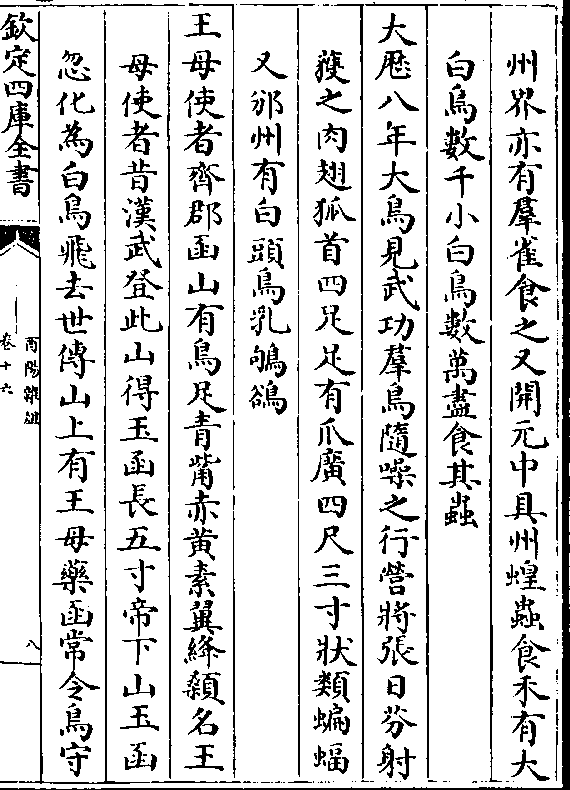 州界亦有羣雀食之又開元中貝州蝗蟲食禾有大
白鳥數千小白鳥數萬盡食其蟲
大厯八年大鳥見武功羣鳥隨噪之行營將張日芬射
獲之肉翅狐首四足足有爪廣四尺三寸狀類蝙蝠
又邠州有白頭鳥乳鴝鵒
王母使者齊郡函山有鳥足青嘴赤黄素翼絳顙名王
母使者昔漢武登此山得玉函長五寸帝下山玉函
忽化為白鳥飛去世傳山上有王母藥函常令鳥守
欽定四庫全書
酉陽雜俎
卷十六
八